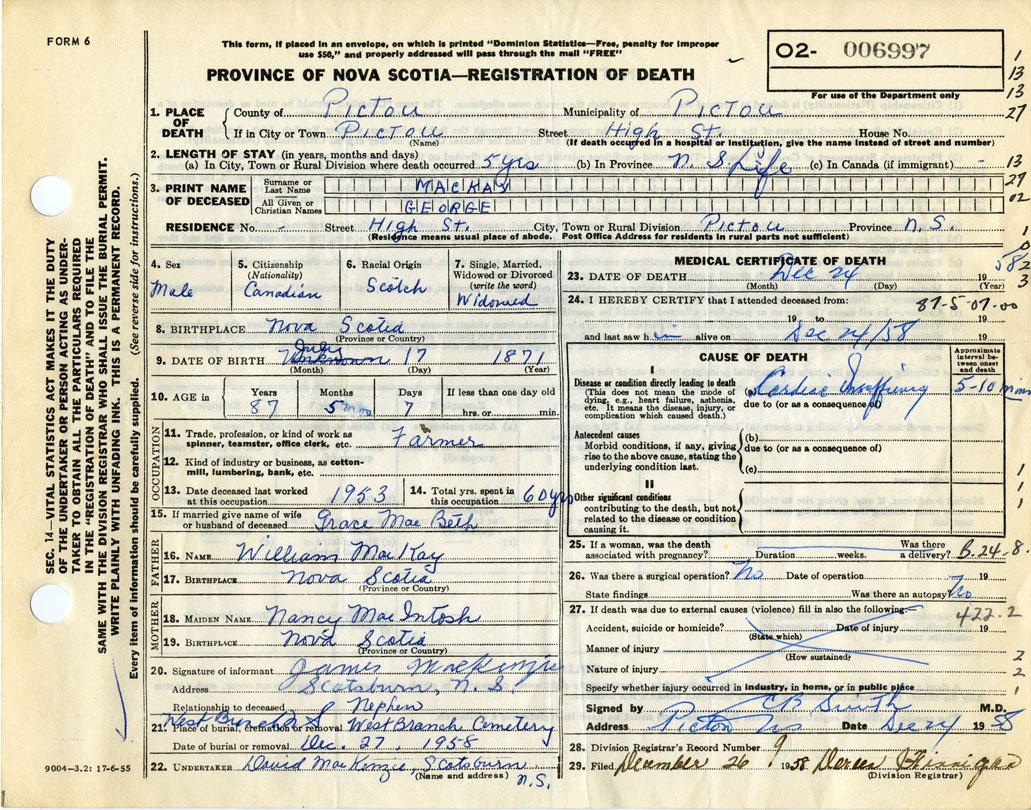 FORM 6
This form, if placed in an envelope, on which is printed "Dominion Statistics—Free, penalty for improper
use $50," and properly addressed will pass through the mail "FREE"
PROVINCE OF NOVA SCOTIA—REGISTRATION OF DEATH
02- 006997
For use of the Department only
1
13
13
27
1. PLACE OF DEATH County of Pictou Municipality of Pictou
If in City or Town Pictou Street High St. House No.
(Name) (If death occurred in a hospital or institution, give the name instead of street and number)
2. LENGTH OF STAY (in years, months and days)
(a) In City, Town or Rural Division where death occurred 5 yrs (b) In Province N. S. Life (c) In Canada (if immigrant) - 13
3. PRINT NAME OF DECEASED Surname or Last Name MACKAY 27
All Given or Christian Names GEORGE 02
RESIDENCE No. - Street High St. City, Town or Rural Division Pictou Province N.S.
(Residence means usual place of abode. Post Office Address for residents in rural parts not sufficient)
4. Sex
Male
5. Citizenship
(Nationality)
Canadian
6. Racial Origin
Scotch
7. Single, Married,
Widowed or Divorced
(write the word)
Widowed
8. BIRTHPLACE Nova Scotia
(Province or Country)
9. DATE OF BIRTH July Unknown 17 1871
(Month) (Day) (Year)
10. AGE in Years Months Days If less than one day old
87 5 mos 7 hrs. or min.
OCCUPATION
11. Trade, profession, or kind of work as
spinner, teamster, office clerk, etc. Farmer
12. Kind of industry or business, as cotton-
mill, lumbering, bank, etc.
13. Date deceased last worked
at this occupation 1953
14. Total yrs. spent in
this occupation 60 yrs
15. If married give name of wife
or husband of deceased Grace MacBeth
FATHER
16. NAME William MacKay
17. BIRTHPLACE Nova Scotia
(Province or Country)
MOTHER
18. MAIDEN NAME Nancy MacIntosh
19. BIRTHPLACE Nova Scotia
(Province or Country)
20. Signature of informant James MacKenzie
Address Scotsburn, N. S.
Relationship to deceased Nephew
West Branch
21. Place of burial, cremation or removal West Branch Cemetery
Date of burial or removal Dec. 27, 1958
22. UNDERTAKER David MacKenzie, Scotsburn
(Name and address) N.S.
MEDICAL CERTIFICATE OF DEATH
23. DATE OF DEATH Dec 24 19 58
(Month) (Day) (Year)
24. I HEREBY CERTIFY that I attended deceased from: 87-5-07-00
19 to 19
and last saw h im alive on Dec 24/58
CAUSE OF DEATH
Approximate
interval be-
tween onset
and death
I
Disease or condition directly leading to death
(This does not mean the mode of
dying, e.g., heart failure, asthenia,
etc. It means the disease, injury, or
complication which caused death.)
(a) Cardiac Insufficiency 5-10 mins
due to (or as a consequence of)
Antecedent causes
Morbid conditions, if any, giving
rise to the above cause, stating the
underlying condition last.
(b)
due to (or as a consequence of)
(c)
II
Other significant conditions
contributing to the death, but not
related to the disease or condition
causing it.
25. If a woman, was the death
associated with pregnancy? Duration weeks. Was there
a delivery? B-24-8
26. Was there a surgical operation? No Date of operation 19
State findings Was there an autopsy? No
27. If death was due to external causes (violence) fill in also the following: 422-2
Accident, suicide or homicide? Date of injury 19
(State which)
Manner of injury
(How sustained)
Nature of injury
Specify whether injury occurred in industry, in home, or in public place
Signed by CB Smith M.D.
Address Pictou NS Date Dec 24 19 58
28. Division Registrar's Record Number 9
29. Filed December 26 1958
(Division Registrar)
SEC. 14—VITAL STATISTICS ACT MAKES IT THE DUTY
OF THE UNDERTAKER OR PERSON ACTING AS UNDER-
TAKER TO OBTAIN ALL THE PARTICULARS REQUIRED
IN THE "REGISTRATION OF DEATH" AND TO FILE THE
SAME WITH THE DIVISION REGISTRAR WHO SHALL ISSUE THE BURIAL PERMIT.
WRITE PLAINLY WITH UNFADING INK. THIS IS A PERMANENT RECORD.
Every item of information should be carefully supplied. (See reverse side for instructions.)
9004-3.2: 17-6-55